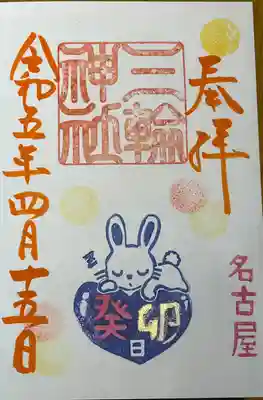 奉拝
三輪
神社
名古屋
癸卯
日
令和五年四月十五日